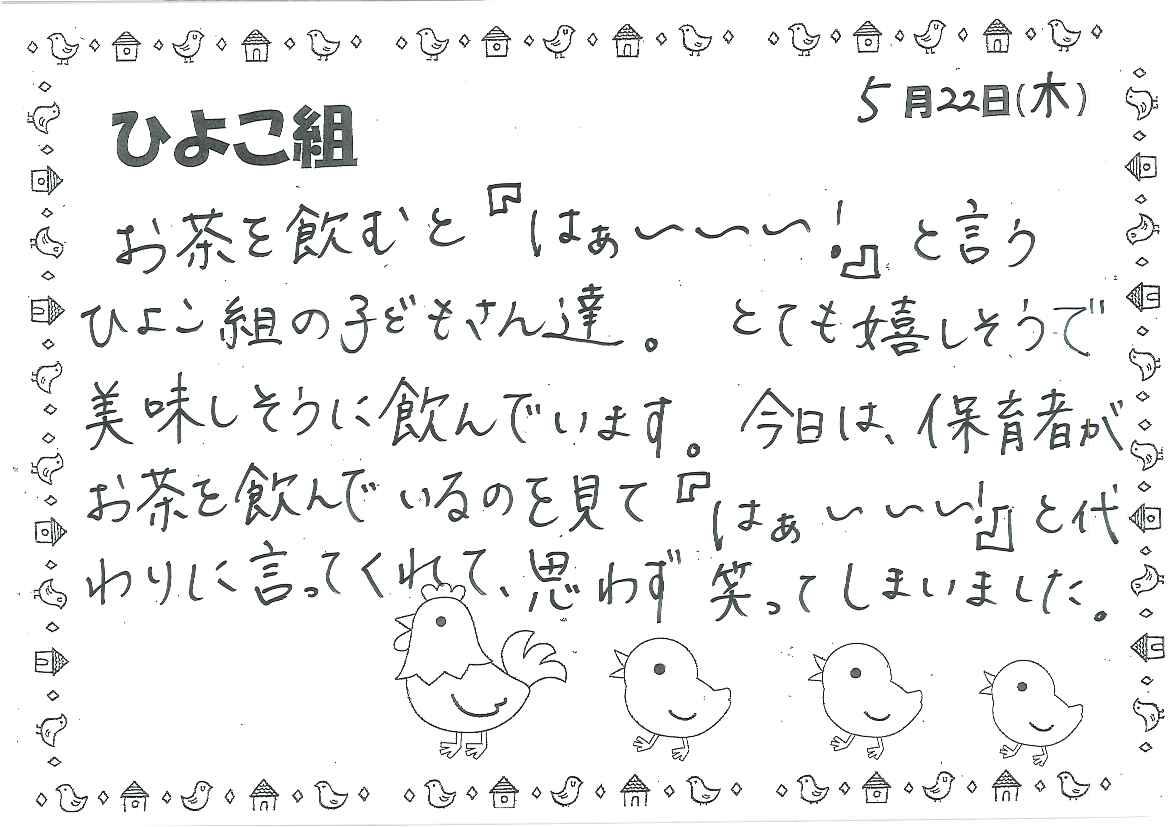 5月22日(木)
ひよこ組
お茶を飲むと『はぁ〜〜〜!』と言う
ひよこ組の子どもさん達。とても嬉しそうで
美味しそうに飲んでいます。今日は、保育者が
お茶を飲んでいるのを見て『はぁ〜〜〜!』と代
わりに言ってくれて、思わず笑ってしまいました。